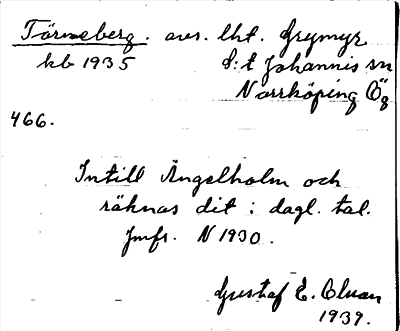 Törneberg. avs. lht. Grymyr
kb 1935 S:t Johannis sn
Norrköping Ög
466.
Intill Ängelholm och
räknas dit i dagl. tal.
Jmfr. N 1930.
Gustaf E. Olman
1939.